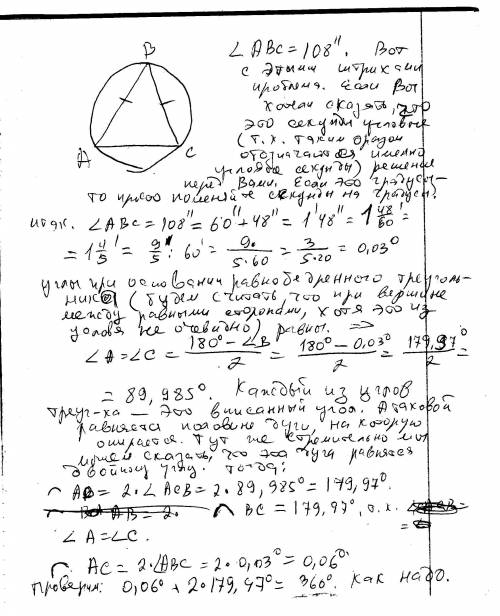 B
A
C
∠ABC = 108". Вот
с этими штрихами
проблема. Если Вы
хотели сказать, что
это секунды угловые
(т.к. таким образом
обозначаются именно
угловые секунды) решение
перед Вами. Если это градусы —
то просто поменяйте секунды на градусы.
Итак. ∠ABC = 108" = 60" + 48" = 1'48" = 1 48/60' =
= 1 4/5' = 9/5' : 60' = 9/5·60 = 3/5·20 = 0,03°
углы при основании равнобедренного треуголь-
ника (будем считать, что при вершине
между равными сторонами, хотя это из
условия не очевидно) равны. ⇒
∠A = ∠C = 180° − ∠B/2 = 180° − 0,03°/2 = 179,97°/2 =
= 89,985°. Каждый из углов
треуг-ка — это вписанный угол. А таковой
равняется половине дуги, на которую
опирается. Тут же стремительно мы
можем сказать, что эта дуга равняется
двойному углу. Тогда:
◠ AB = 2·∠ACB = 2·89,985° = 179,97°
◠ BC = 179,97°, т.к.
∠A = ∠C.
◠ AC = 2·∠ABC = 2·0,03° = 0,06°
Проверим: 0,06° + 2·179,97° = 360°. Как надо.